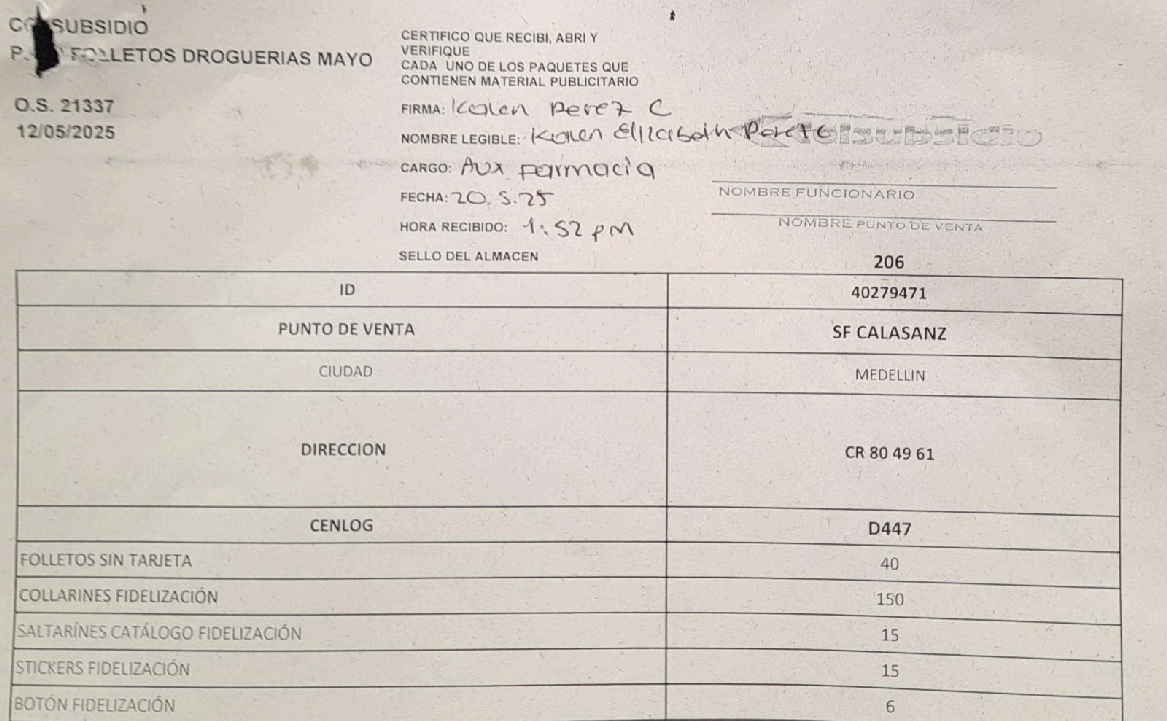 SUBSIDIO
FOLLETOS DROGUERIAS MAYO
O.S. 21337
12/05/2025
CERTIFICO QUE RECIBI, ABRI Y
VERIFIQUE
CADA UNO DE LOS PAQUETES QUE
CONTIENEN MATERIAL PUBLICITARIO
FIRMA: Karen Perez C
NOMBRE LEGIBLE: Karen Elizabeth
CARGO: Aux farmacia
FECHA: 20.5.25
HORA RECIBIDO: 1:52 pm
SELLO DEL ALMACEN
NOMBRE FUNCIONARIO
NOMBRE PUNTO DE VENTA
206
ID 40279471
PUNTO DE VENTA SF CALASANZ
CIUDAD MEDELLIN
DIRECCION CR 80 49 61
CENLOG D447
FOLLETOS SIN TARJETA 40
COLLARINES FIDELIZACIÓN 150
SALTARÍNES CATÁLOGO FIDELIZACIÓN 15
STICKERS FIDELIZACIÓN 15
BOTÓN FIDELIZACIÓN 6